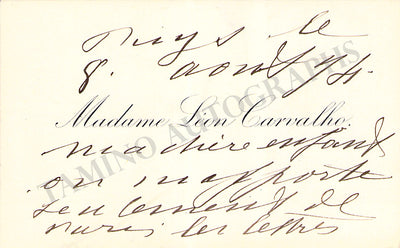 Puys le
8. août 94.
Madame Léon Carvalho.
ma chère enfant
on m'apporte
seulement de
Paris les lettres
TAMINO AUTOGRAPHS